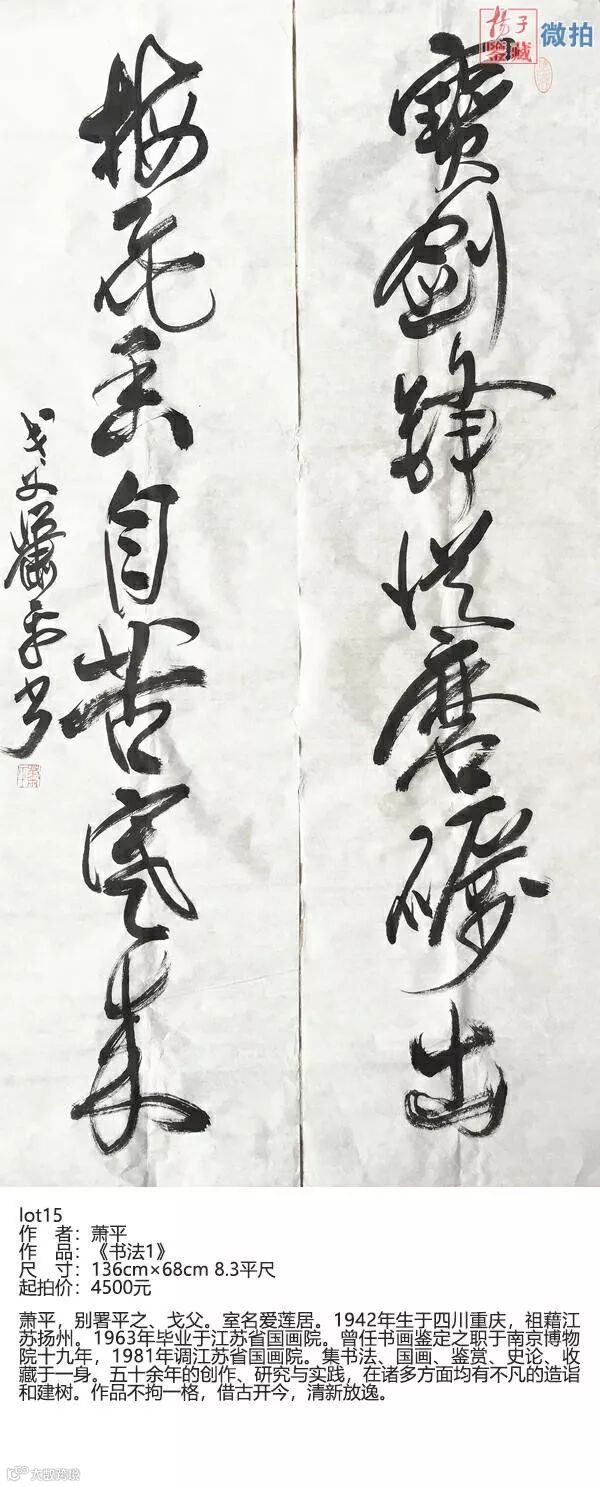 揚子
鑒藏
微拍
寶劍鋒從磨礪出
梅花香自苦寒来
戈父萧平书
lot15
作 者：萧平
作 品：《书法1》
尺 寸：136cm×68cm 8.3平尺
起拍价：4500元
萧平，别署平之、戈父。室名爱莲居。1942年生于四川重庆，祖藉江
苏扬州。1963年毕业于江苏省国画院。曾任书画鉴定之职于南京博物
院十九年，1981年调江苏省国画院。集书法、国画、鉴赏、史论、收
藏于一身。五十余年的创作、研究与实践，在诸多方面均有不凡的造诣
和建树。作品不拘一格，借古开今，清新放逸。
大数跨境